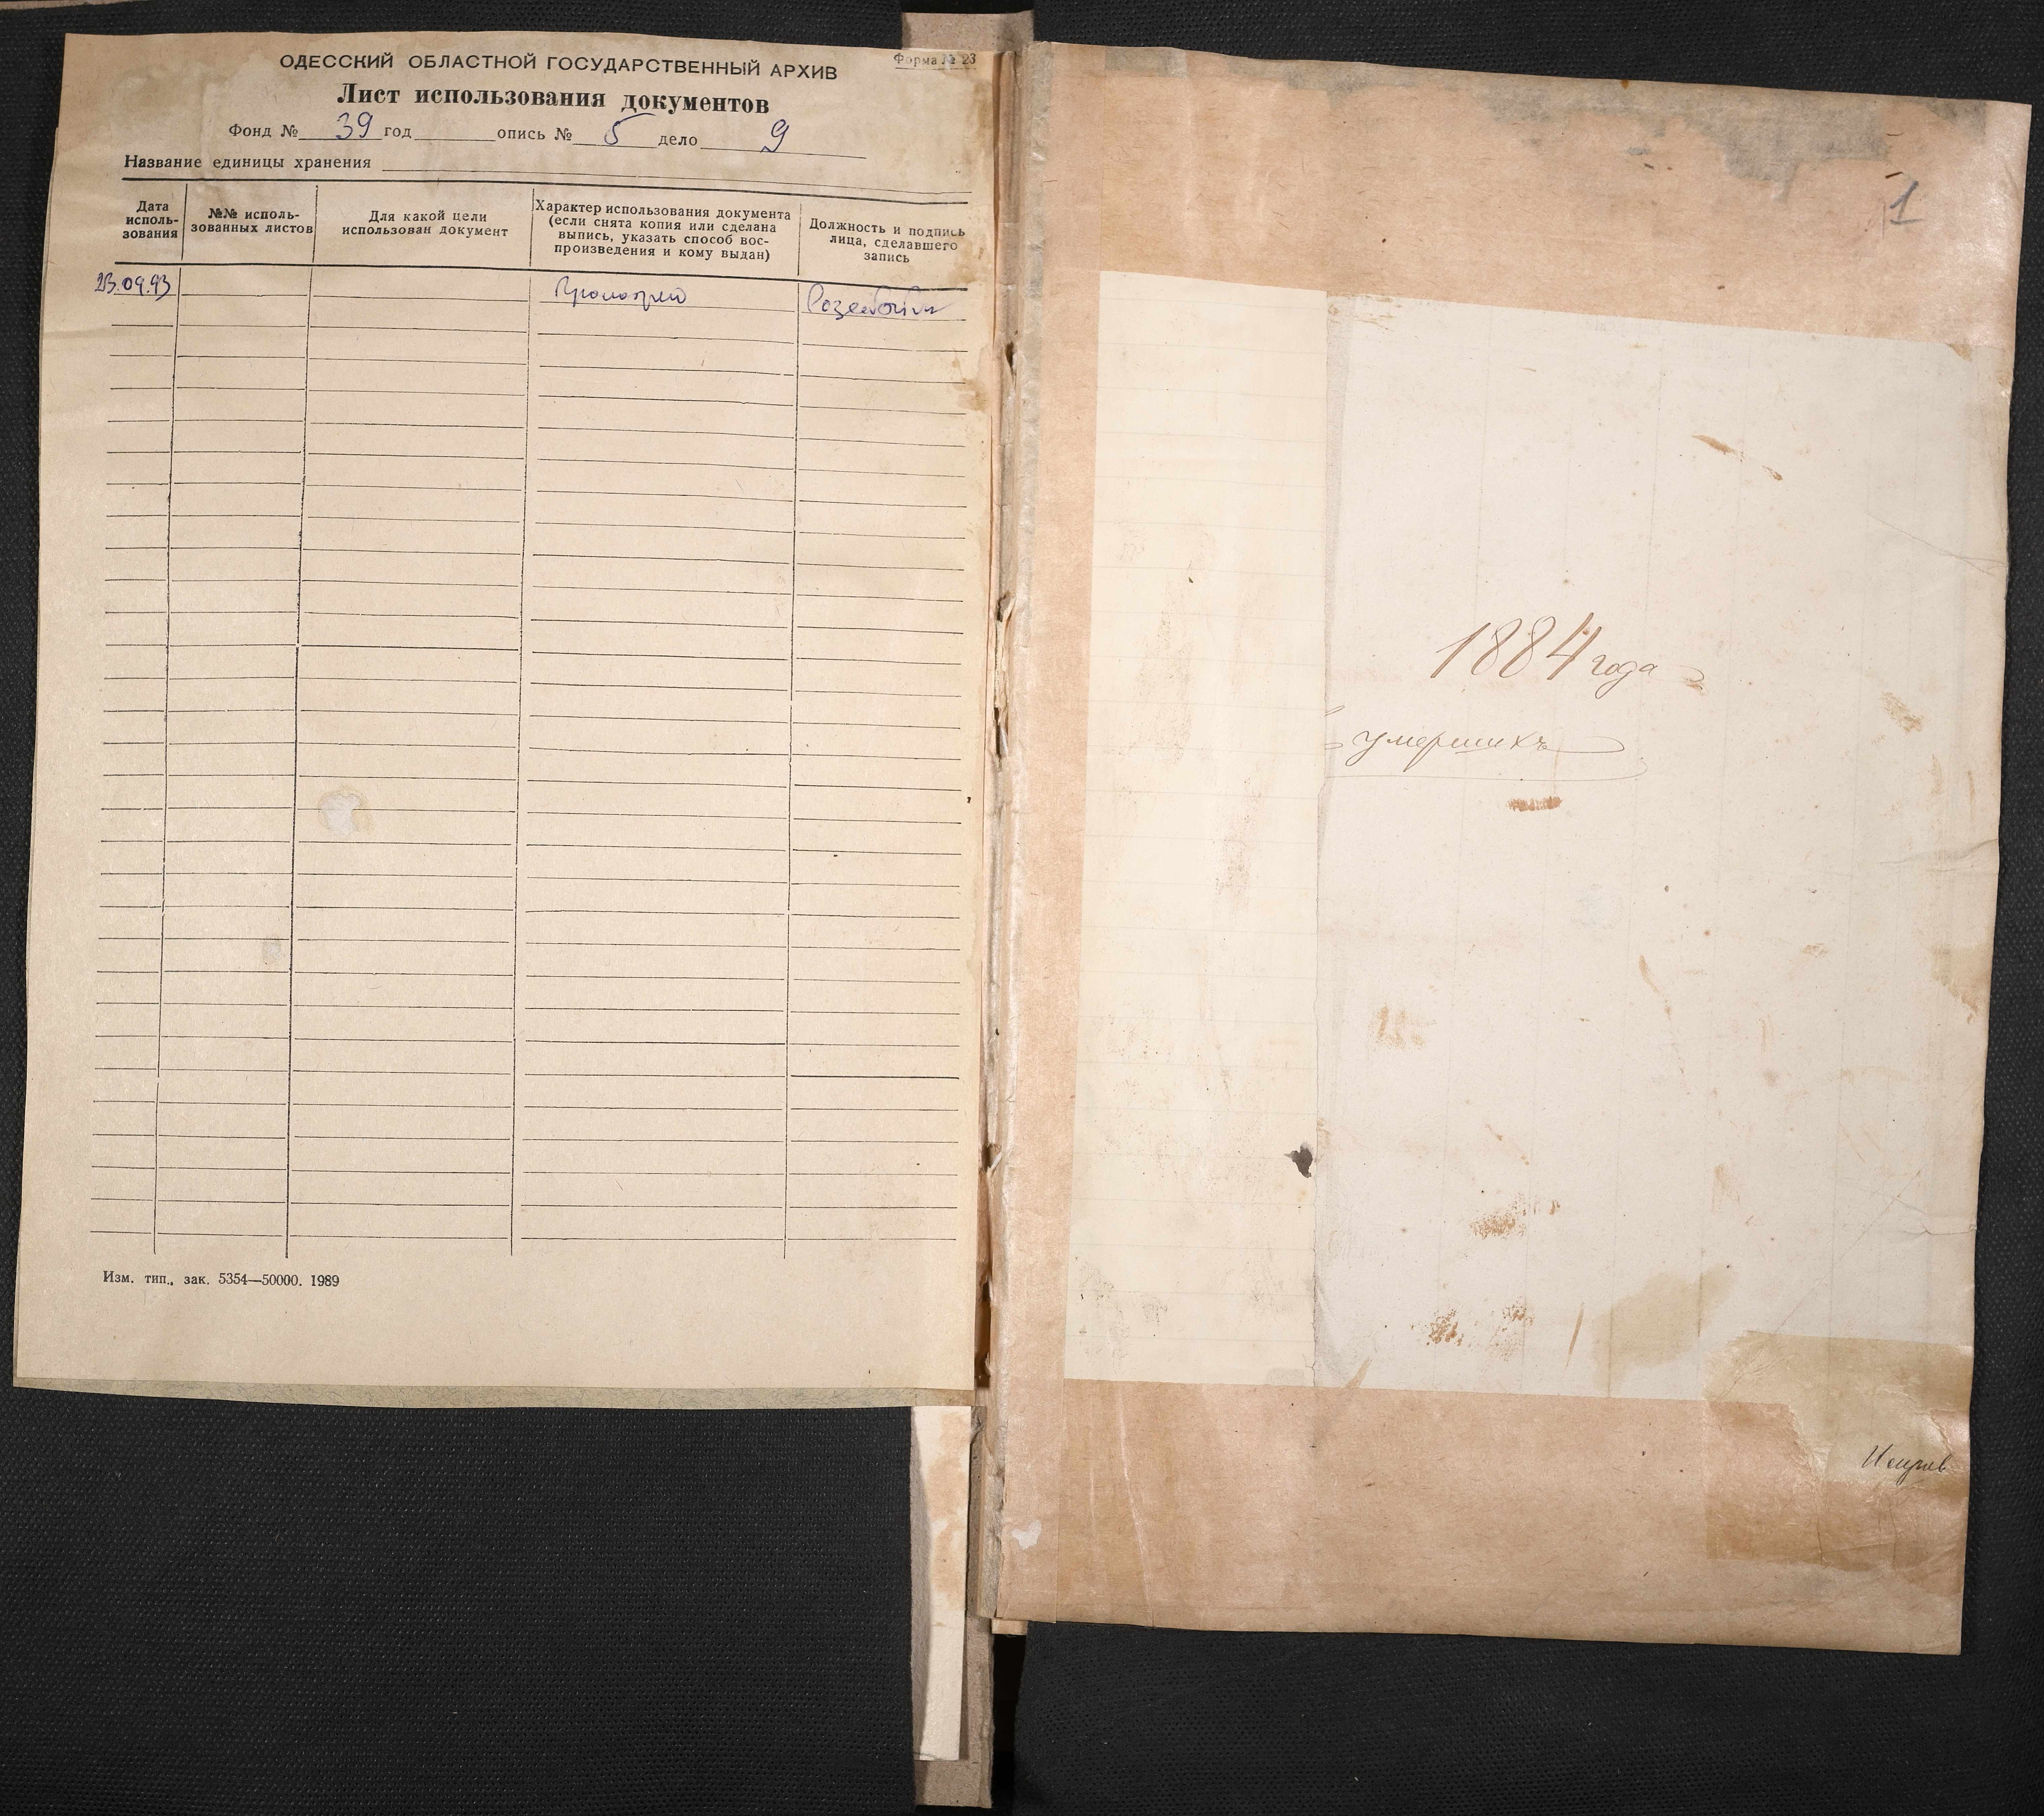 ОДЕССКИЙ ОБЛАСТНОЙ ГОСУДАРСТВЕННЫЙ АРХИВ
Форма № 23
Лист использования документов
Фонд № 39 год опись № 5 дело 9
Название единицы хранения
Дата исполь-зования
№№ исполь-зованных листов
Для какой цели использован документ
Характер использования документа (если снята копия или сделана выпись, указать способ вос-произведения и кому выдан)
Должность и подпись лица, сделавшего запись
23.09.93
Изм. тип., зак. 5354—50000. 1989
1
1884 года
умерших